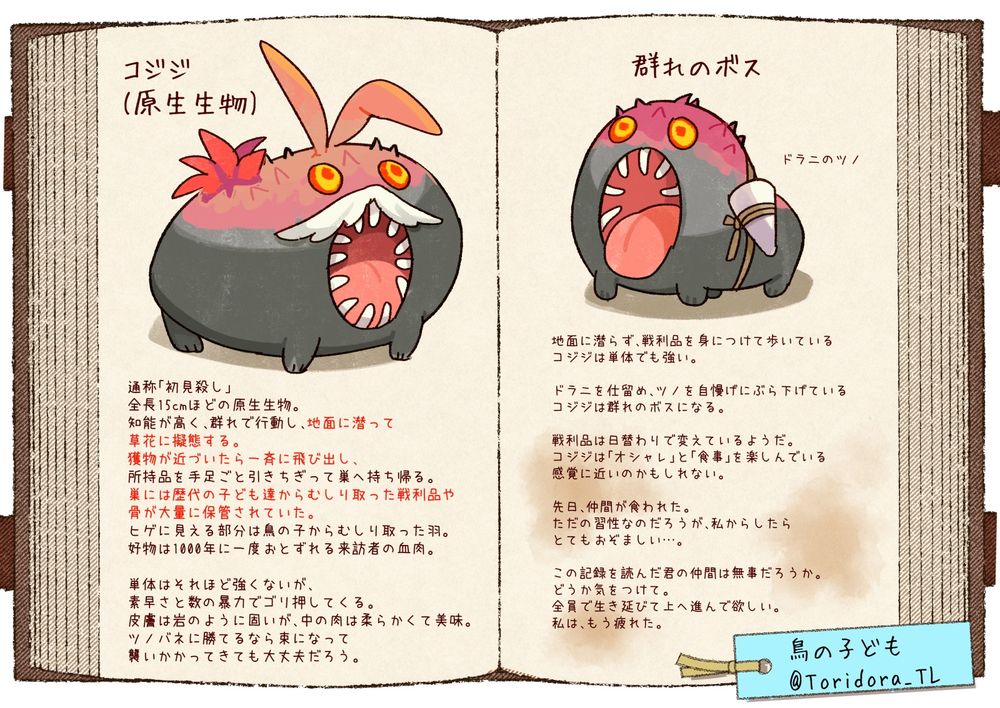 コジジ
(原生生物)
通称「初見殺し」
全長15cmほどの原生生物。
知能が高く、群れで行動し、地面に潜って
草花に擬態する。
獲物が近づいたら一斉に飛び出し、
所持品を手足ごと引きちぎって巣へ持ち帰る。
巣には歴代の子ども達からむしり取った戦利品や
骨が大量に保管されていた。
ヒゲに見える部分は鳥の子からむしり取った羽。
好物は1000年に一度おとずれる来訪者の血肉。
単体はそれほど強くないが、
素早さと数の暴力でゴリ押してくる。
皮膚は岩のように固いが、中の肉は柔らかくて美味。
ツノバネに勝てるなら束になって
襲いかかってきても大丈夫だろう。
群れのボス
ドラニのツノ
地面に潜らず、戦利品を身につけて歩いている
コジジは単体でも強い。
ドラニを仕留め、ツノを自慢げにぶら下げている
コジジは群れのボスになる。
戦利品は日替わりで変えているようだ。
コジジは「オシャレ」と「食事」を楽しんでいる
感覚に近いのかもしれない。
先日、仲間が食われた。
ただの習性なのだろうが、私からしたら
とてもおぞましい…。
この記録を読んだ君の仲間は無事だろうか。
どうか気をつけて。
全員で生き延びて上へ進んで欲しい。
私は、もう疲れた。
鳥の子ども
@Toridora_TL